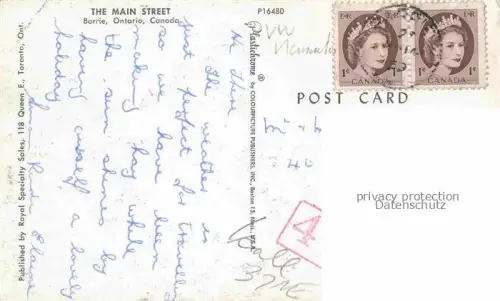 THE MAIN STREET
Barrie, Ontario, Canada
P16480
Published by Royal Specialty Sales, 118 Queen E. Toronto, Ont.
Plastichrome
® by COLOURPICTURE PUBLISHERS, INC., Boston 15, Mass., U.S.A.
Hi There
Just the weather is
just perfect for travelling
so we have been
making hay while
the sun shines by
having ourself a lovely
holiday
Elaine
EIIR
1¢ CANADA
EIIR
1¢ CANADA
POST CARD
40
4
privacy protection
Datenschutz